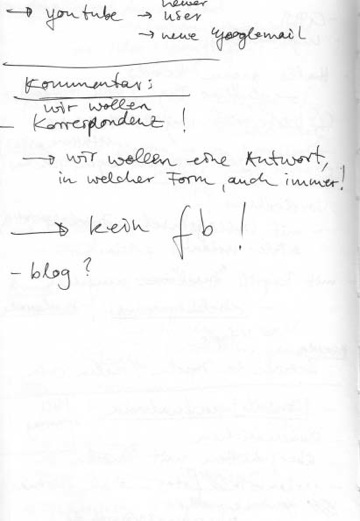 → youtube → neuer user
→ neue googlemail
Kommentar:
wir wollen
– Korrespondenz!
→ wir wollen eine Antwort,
in welcher Form, auch immer!
→ kein fb!
– blog?